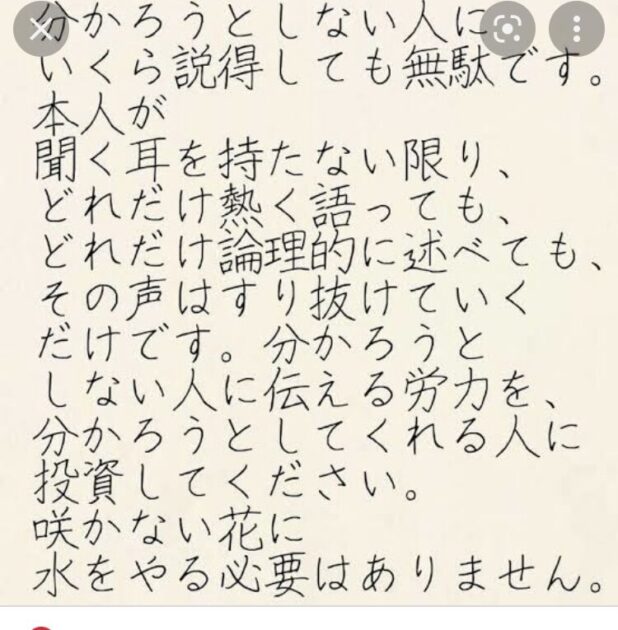 分かろうとしない人に
いくら説得しても無駄です。
本人が
聞く耳を持たない限り、
どれだけ熱く語っても、
どれだけ論理的に述べても、
その声はすり抜けていく
だけです。分かろうと
しない人に伝える労力を、
分かろうとしてくれる人に
投資してください。
咲かない花に
水をやる必要はありません。